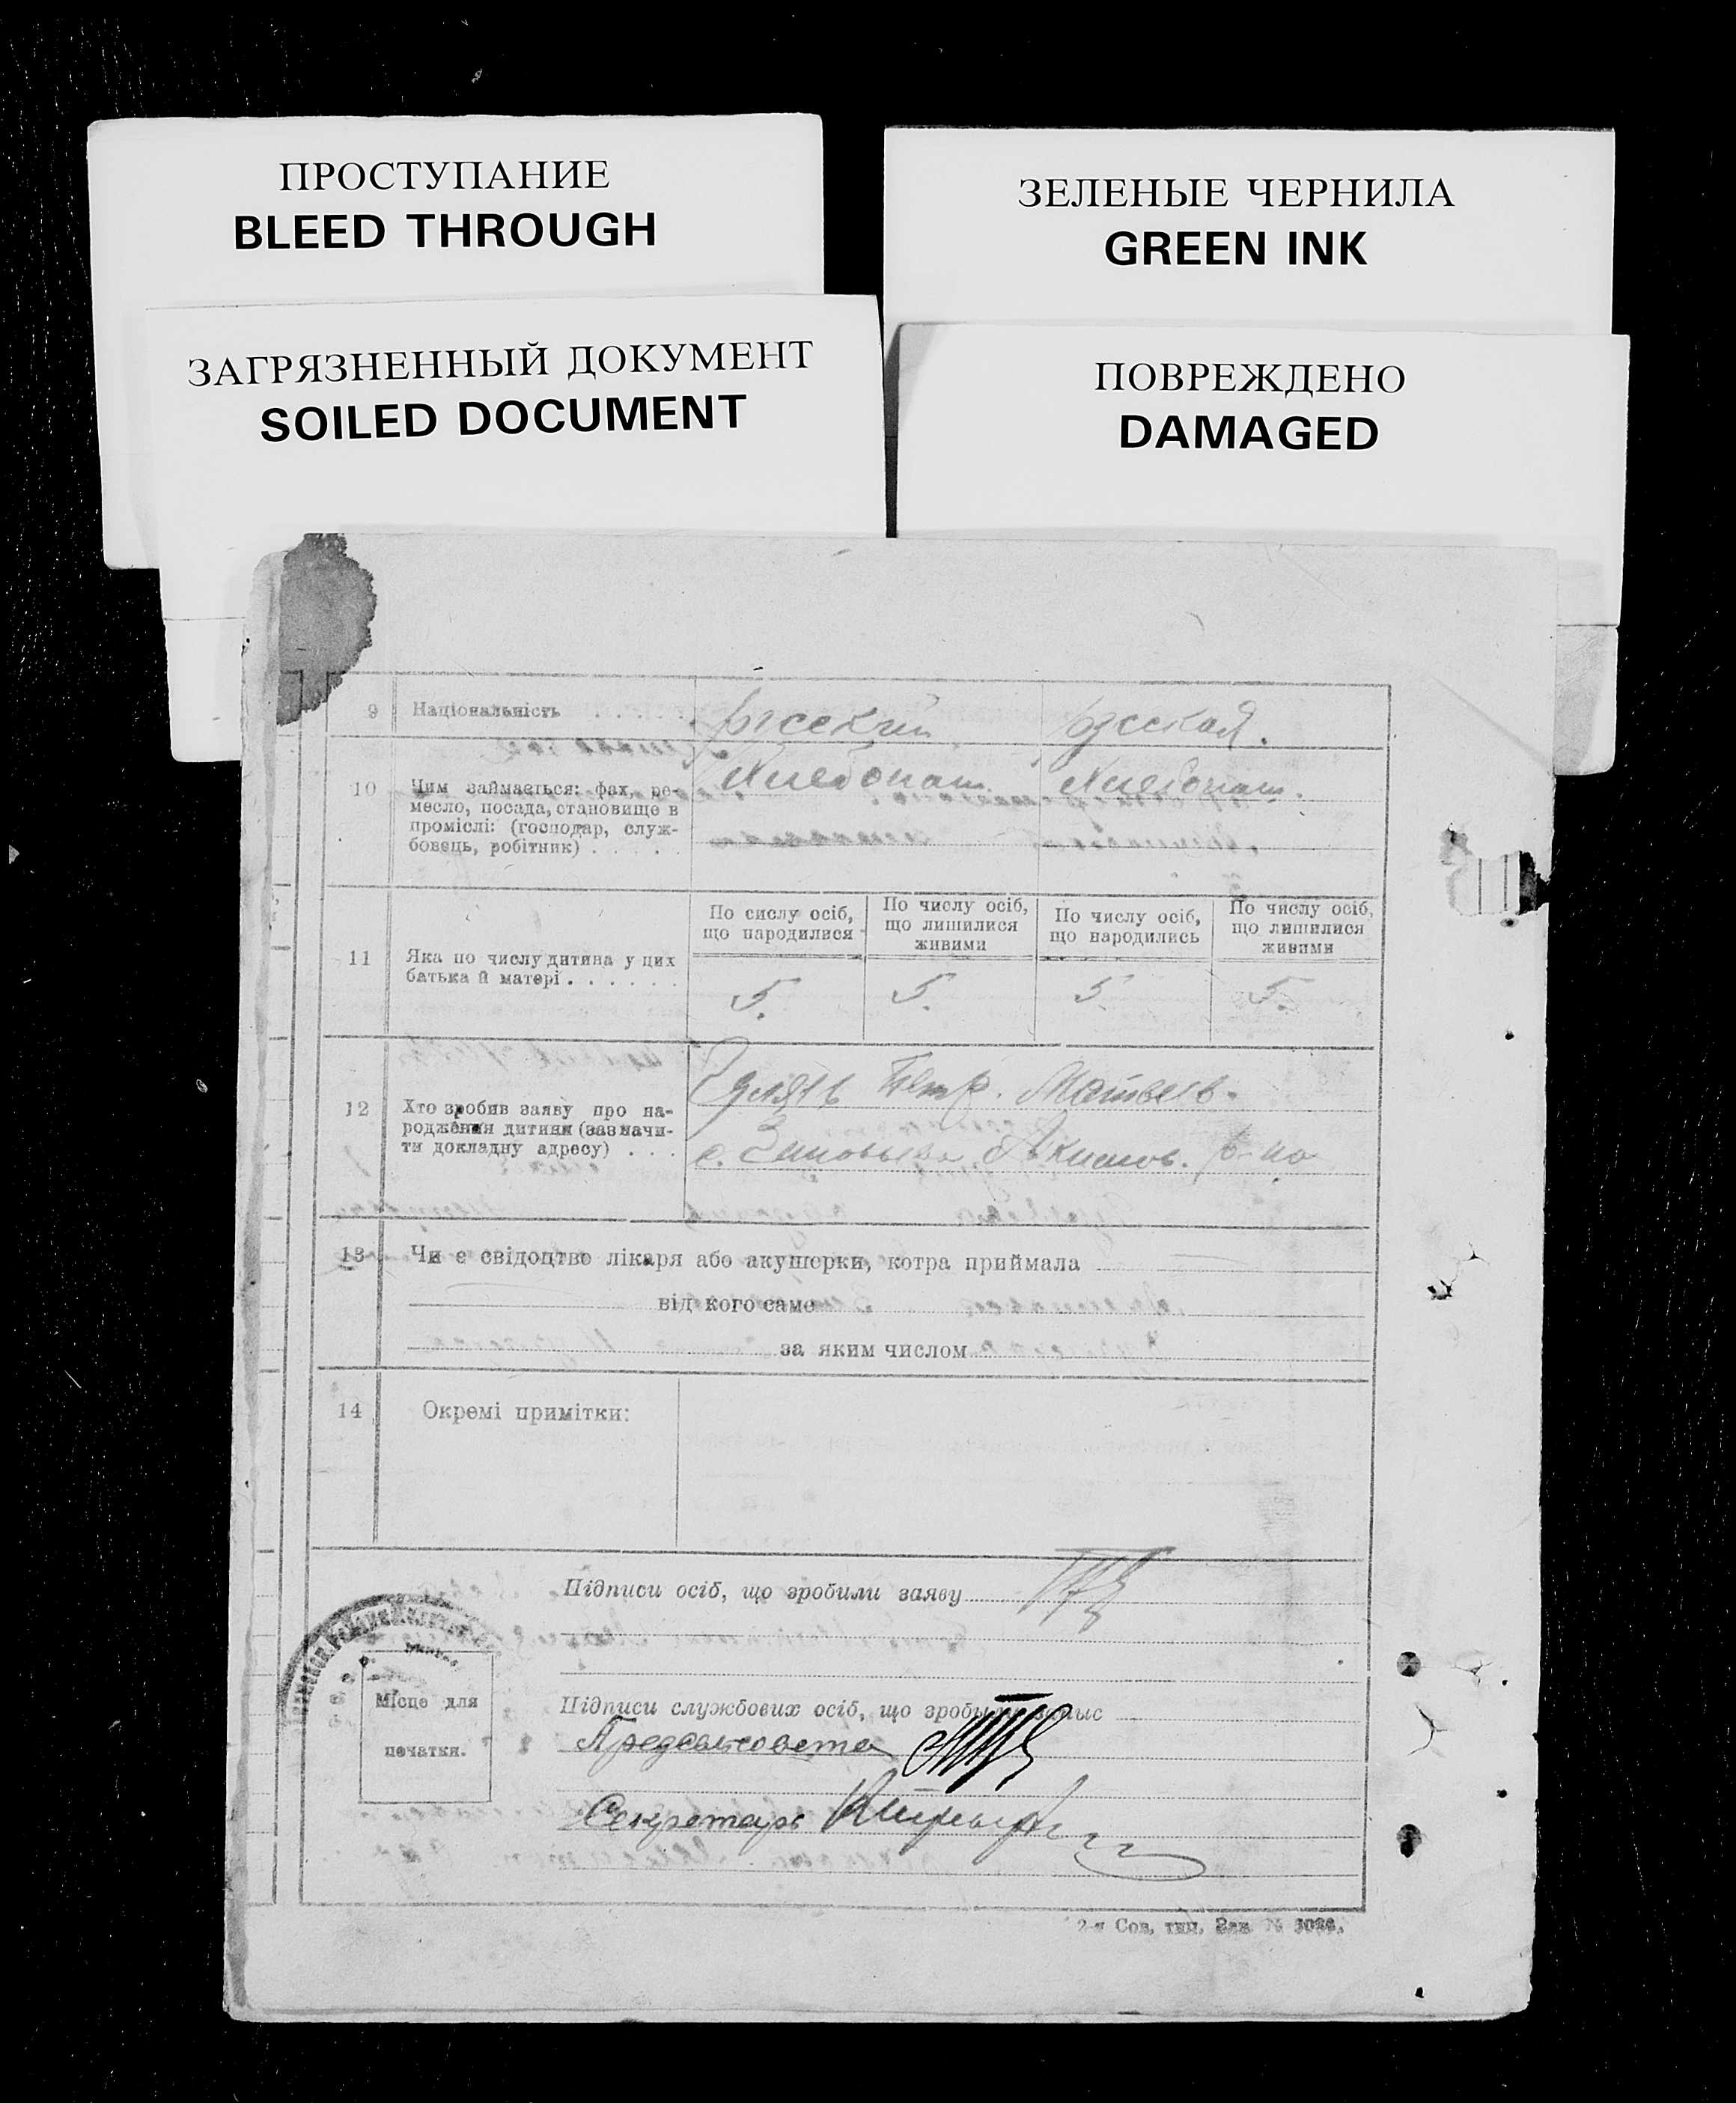 ПРОСТУПАНИЕ
BLEED THROUGH
ЗЕЛЕНЫЕ ЧЕРНИЛА
GREEN INK
ЗАГРЯЗНЕННЫЙ ДОКУМЕНТ
SOILED DOCUMENT
ПОВРЕЖДЕНО
DAMAGED
9 Національність . . . . . русский русская.
10 Чим займається: фах, ре-
месло, посада, становище в
проміслі: (господар, служ-
бовець, робітник) . . . . .
Хлебопаш. Хлебопаш.
11 Яка по числу дитина у цих
батька й матері . . . . . .
По сислу осіб,
що народилися
По числу осіб,
що лишилися
живими
По числу осіб,
що народились
По числу осіб,
що лишилися
живими
5. 5. 5 5.
12 Хто зробив заяву про на-
родження дитини (зазначи-
ти докладну адресу) . . .
Петр. Матвеев.
с. Акимов. р-на
13 Чи є свідоцтво лікаря або акушерки, котра приймала
від кого саме
за яким числом
14 Окремі примітки:
Підписи осіб, що зробили заяву
Підписи службових осіб, що зробили запис
Предсельсовета
Секретарь
Місце для
печатки.
2-я Сов. тип. Зак. №